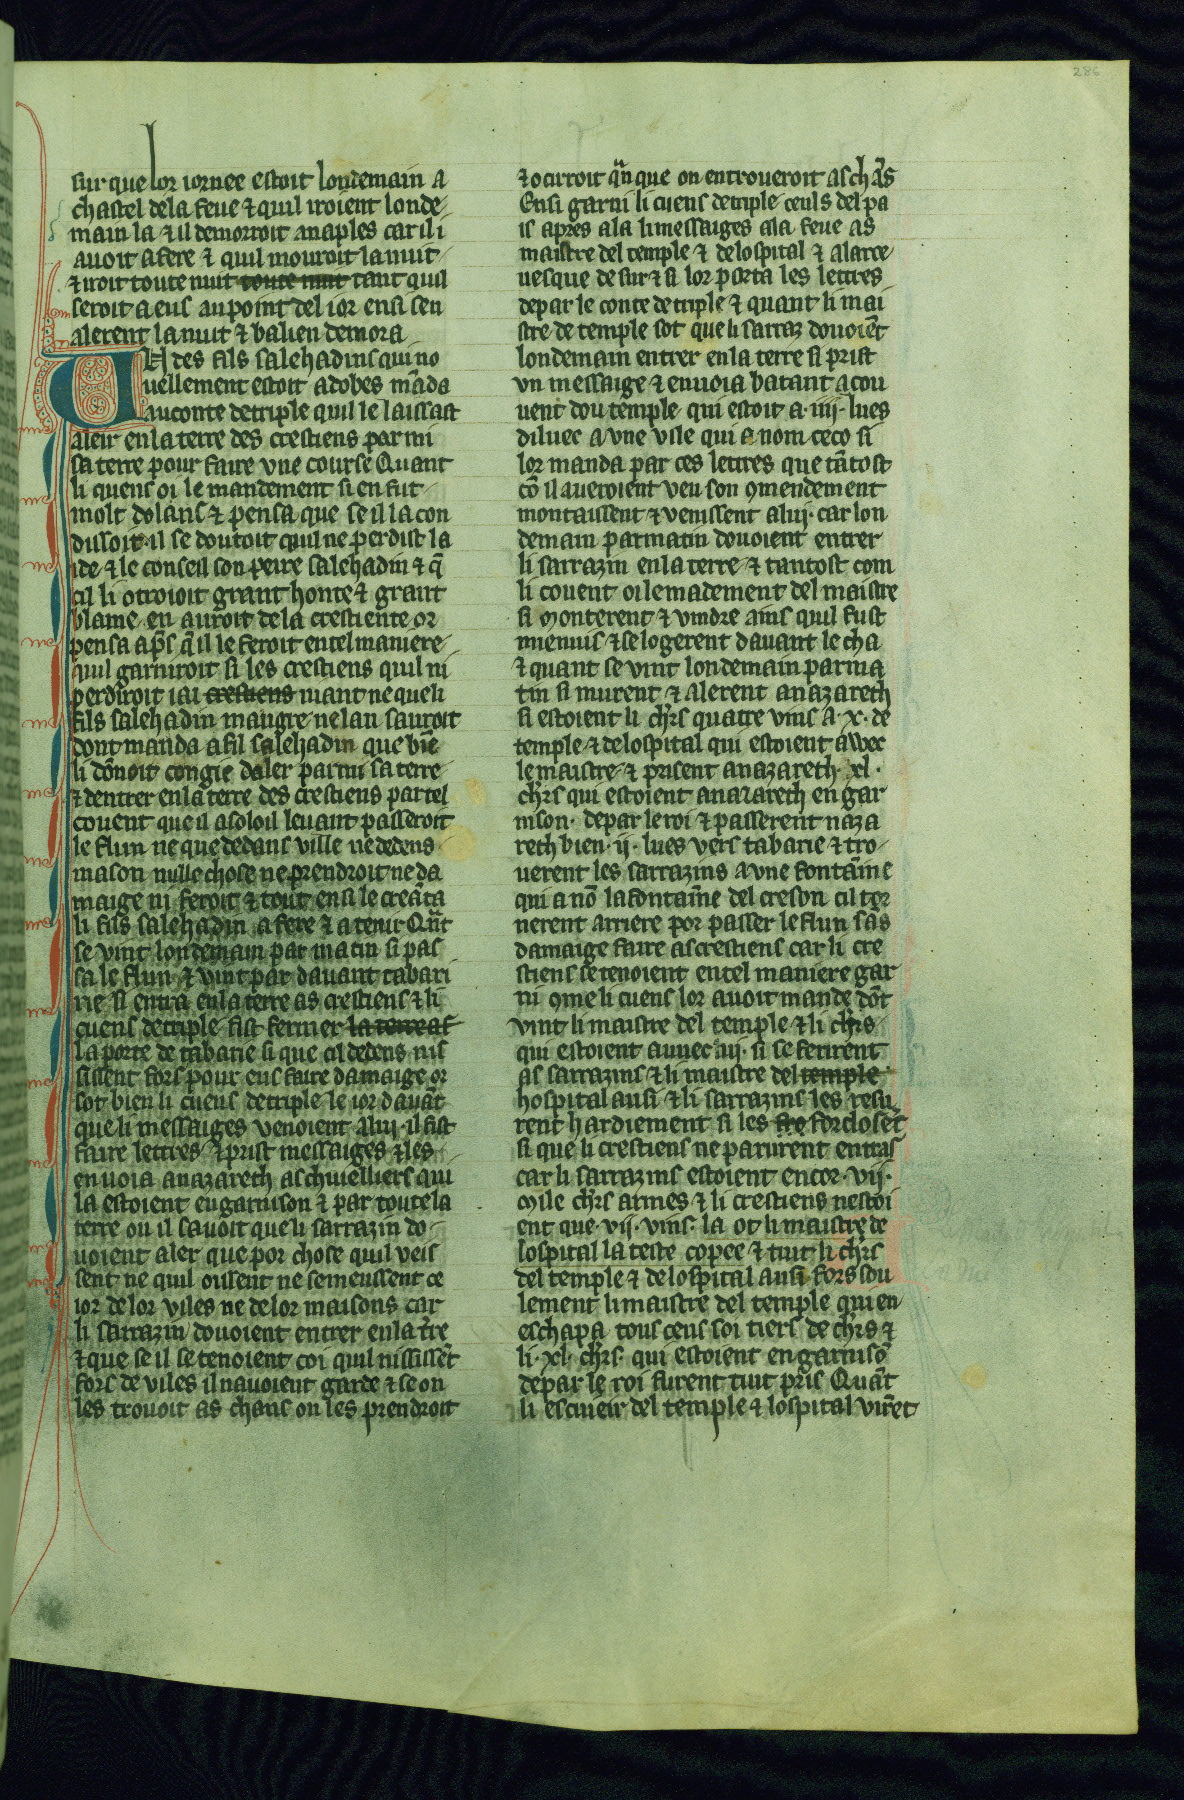 286
sur que lor iornee estoit londemain a
chastel de la feue ⁊ quil iroient londe
main la ⁊ il demorroit anaples car il i
auoit afere ⁊ quil mouroit la nuit
⁊ iroit toute nuit toute nuit tant quil
seroit a eus au point del ior ensi sen
alerent la nuit ⁊ balien demora
Un des fils salehadins qui no
uellement estoit adobes mãda
au conte de triple quil le laissast
aleir en la terre des crestiens par mi
sa terre pour faire vne course Quant
li quens oi le mandement si en fut
molt dolans ⁊ pensa que se il la con
dissoit il se doutoit quil ne perdist la
ide ⁊ le conseil son peire salehadin ⁊ q̃
cil li otroioit grant honte ⁊ grant
blame en auroit de la crestiente or
pensa ap̃s q̃ il le feroit en tel maniere
quil garniroit si les crestiens quil ni
perdiroit iai crestiens niant ne que li
fils salehadin maugre ne lan sauroit
dont manda a fil salehadin que biẽ
li dõnoit congie daler parmi sa terre
⁊ dentrer en la terre des crestiens par tel
couent que il a soloil leuant passeroit
le flun ne que dedans ville ne dedens
maison nulle chose ne prendroit ne da
maige ni feroit ⁊ tout ensi le creãta
li fils salehadin a fere ⁊ a tenir Qũt
se vint londemain par matin si pas
sa le flun ⁊ vint par dauant tabari
rie si entra en la terre as crestiens ⁊ li
cuens de triple fist fermer la terre as
la porte de tabarie si que cil dedens nis
sissent fors pour eus faire damaige or
sot bien li cuens de triple le ior dauãt
que li messaiges venoient a lui il fist
faire lettres ⁊ prist messaiges ⁊ les
enuoia anazareth as chiuelliers qui
la estoient en garnison ⁊ par toute la
terre ou il sauoit que li sarrazin do
uoient aler que por chose quil veis
sent ne quil oissent ne se meussent ce
ior de lor viles ne de lor maisons car
li sarrazin douoient entrer en la tr̃e
⁊ que se il se tenoient coi quil nississẽt
fors de viles il nauoient garde ⁊ se on
les trouoit as chans on les prendroit
⁊ ocirroit qñque on en troueroit as chãs
Ensi garni li cuens de triple ceuls del pa
is apres ala li messaiges a la feue as
maistre del temple ⁊ de lospital ⁊ a larce
uesque de sur ⁊ si lor porta les lettres
de par le conte de triple ⁊ quant li mai
stre de temple sot que li sarraz douoiẽt
londemain entrer en la terre si prist
vn messaige ⁊ enuoia batant a cou
uent dou temple qui estoit a ·iiij· lues
diluec a vne vile qui a nom ceco si
lor manda par ces lettres que tãtost
cõ il aueroient veu son ꝯmendement
montaissent ⁊ venissent a lui· car lon
demain par matin douoient entrer
li sarrazin en la terre ⁊ tantost com
li couent oi le madement del maistre
si monterent ⁊ vindre ains quil fust
mienuis ⁊ se logerent dauant le cha
⁊ quant se vint londemain par ma
tin si murent ⁊ alerent anazareth
si estoient li chr̃s quatre vins ⁊ ·x· de
temple ⁊ de lospital qui estoient auuec
le maistre ⁊ prisent anazareth ·xl·
chr̃s qui estoient anazareth en gar
nison· de par le roi ⁊ passerent naza
reth bien ·ij· lues vers tabarie ⁊ tro
uerent les sarrazins a vne fontaine
qui a nõ la fontaine del creson cil tor
nerent arriere por passer le flun sãs
damaige faire as crestiens car li cre
stiens se tenoient en tel maniere gar
ni ꝯme li cuens lor auoit mande dõt
vint li maistre del temple ⁊ li chr̃s
qui estoient auuec lui· si se ferirent
as sarrazins ⁊ li maistre del temple
hospital ausi ⁊ li sarrazins les resu
rent hardiement si les fre forclosẽt
si que li crestiens ne parurent entras
car li sarrazins estoient encor ·vij·
mile chr̃s armes ⁊ li crestiens nestoi
ent que ·vij· vins· la ot li maistre de
lospital la teste copee ⁊ tuit li chr̃s
del temple ⁊ de lospital ausi fors sou
lement li maistre del temple qui en
eschapa tous ceus soi tiers de chr̃s ⁊
li ·xl· chr̃s qui estoient en garnisõ
de par le roi furent tuit pris Quãt
li escuieir del temple ⁊ lospital virẽt